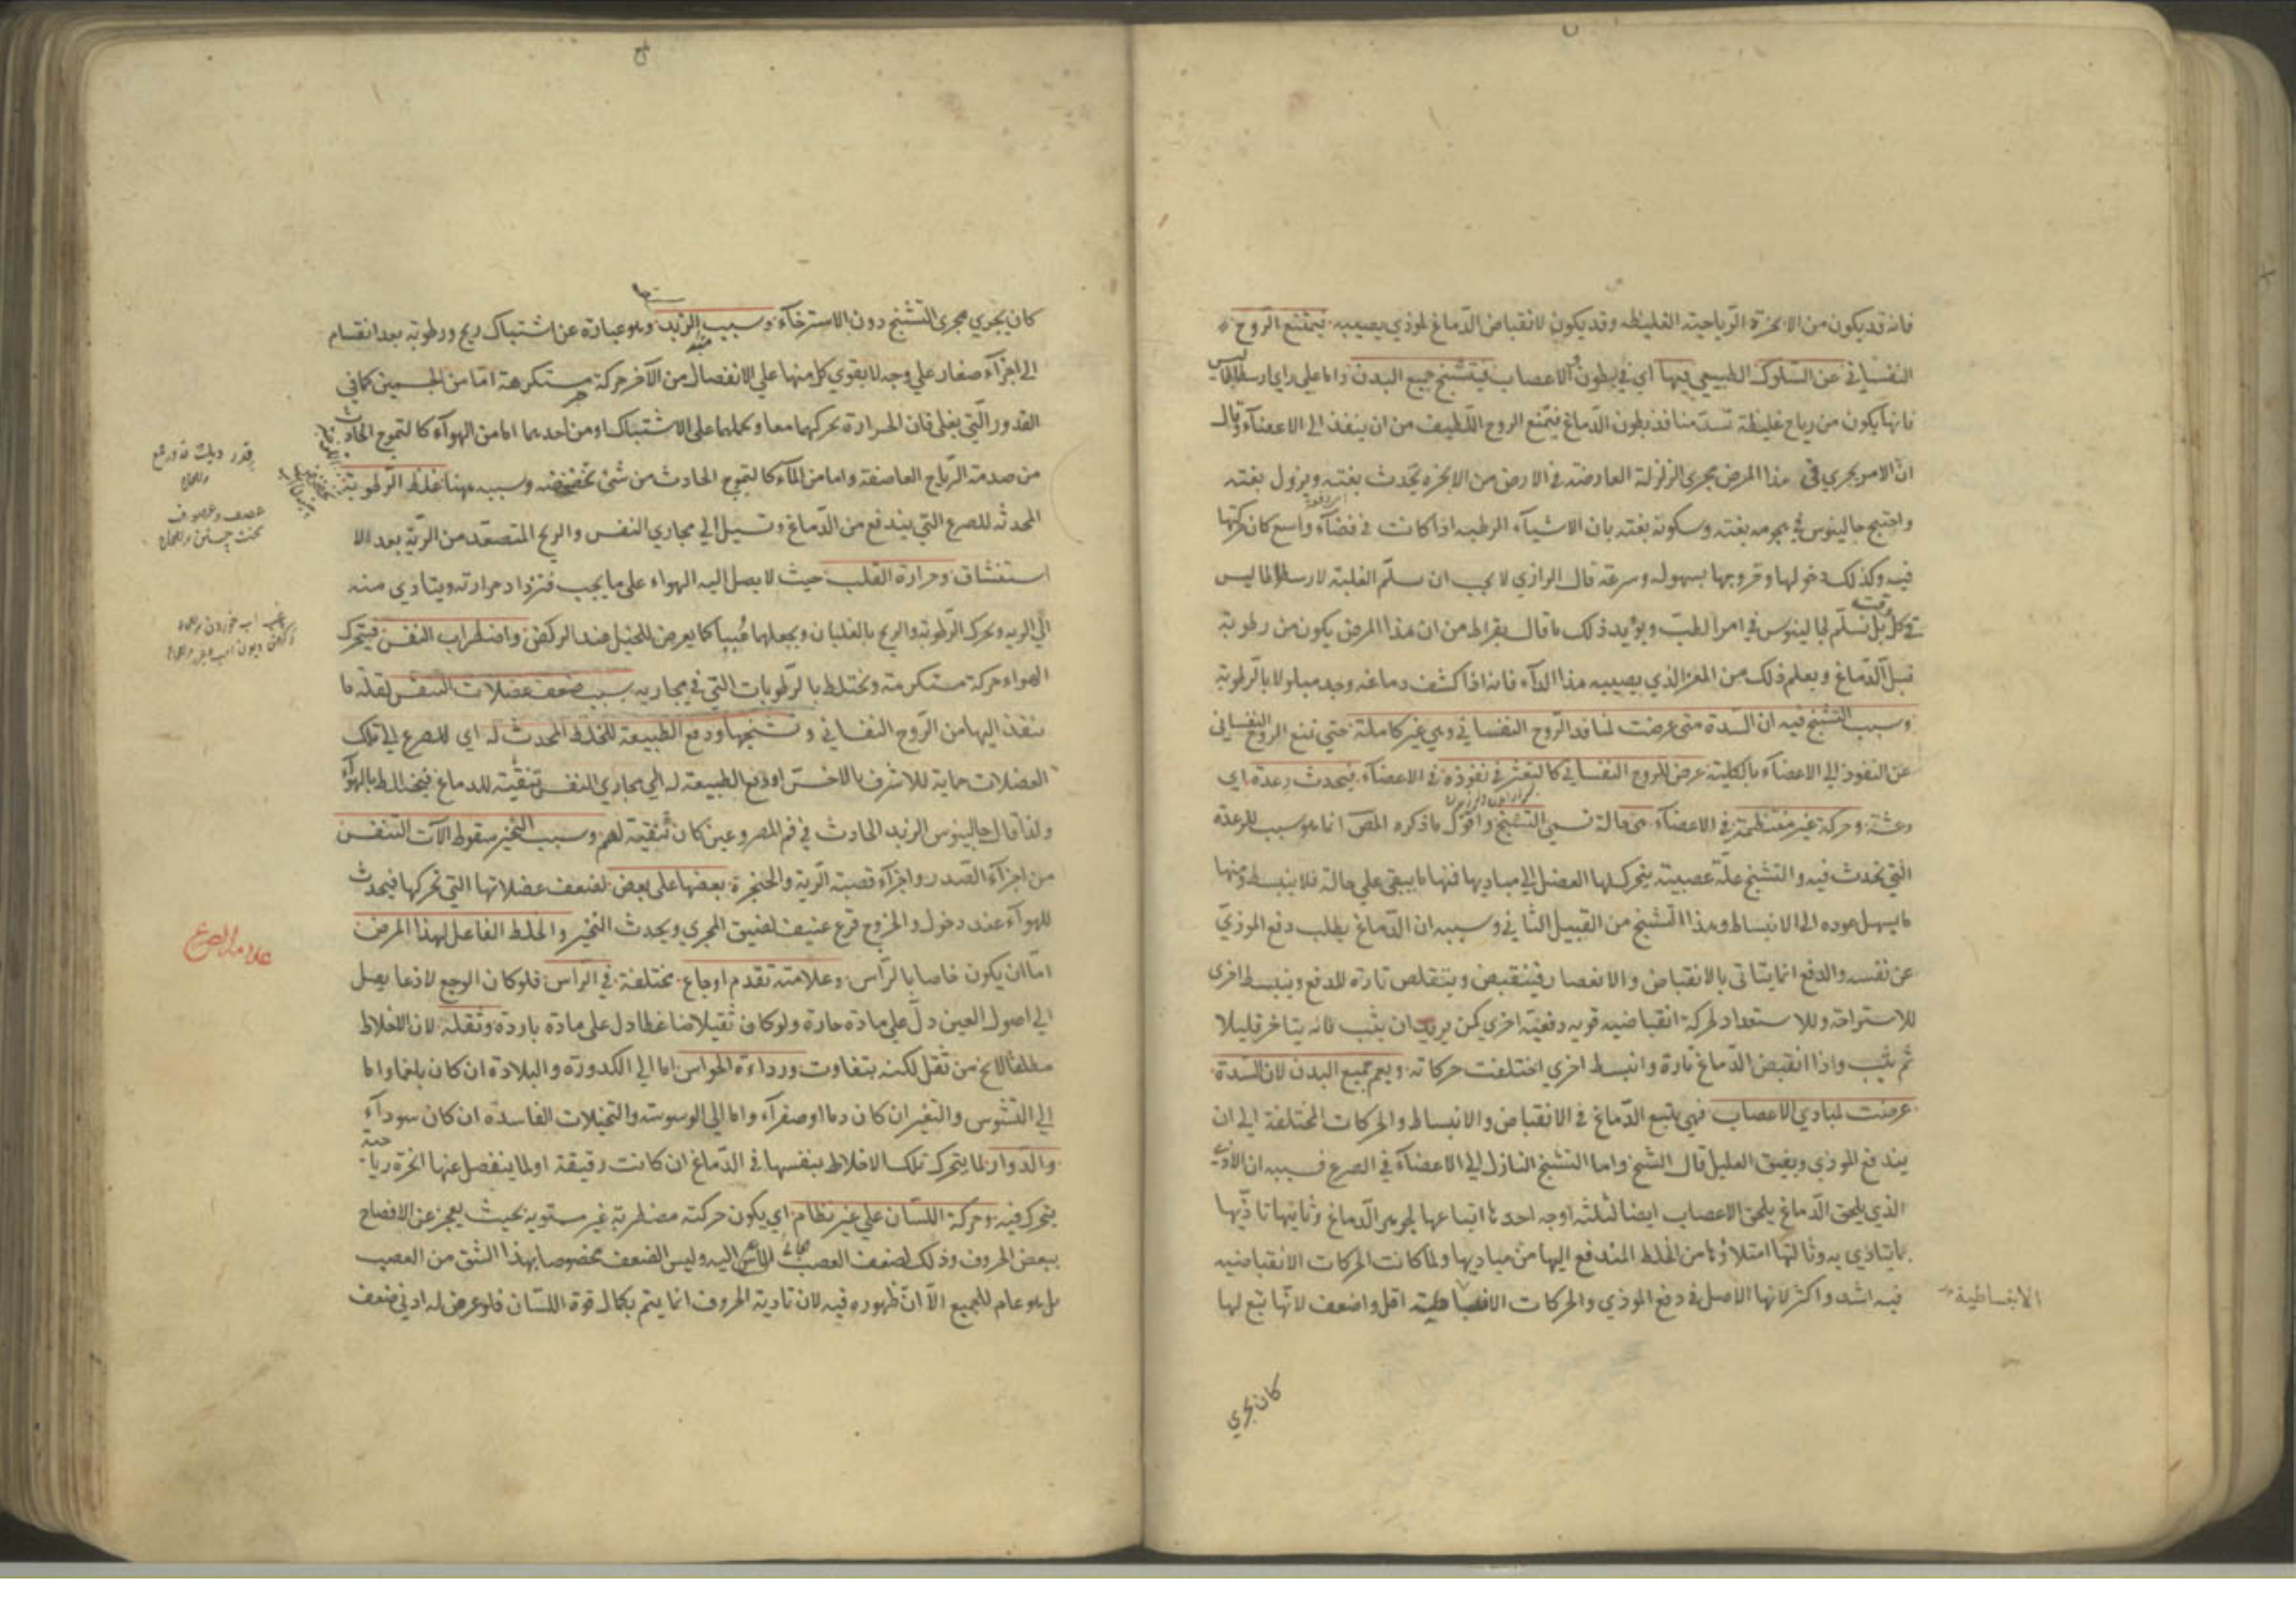 فانه قد يكون من الابخرة الرياحية الغليظه وقد يكون لانقباض الدماغ لموذي يصيبه فيمتنع الروح
النفساني عن السلوك الطبيعي فيها اي في بطون الاعصاب فيتشنج جميع البدن واما على راي ارسطاطاليس
فانها يكون من رياح غليظة تسد منافذ بطون الدماغ فيمنع الروح اللطيف من ان ينفذ الى الاعضاء وقال
ان الامر يجري في هذا المرض مجرى الزلزلة العارضة في الارض من الابخره تحدث بغته ويزول بغته
واحتج جالينوس في هجومه بغته وسكونه بغته بان الاشياء الرطبه اذا كانت في فضاء واسع كان حركتها
فيه وكذلك دخولها وخروجها بسهوله وسرعة قال الرازي لا يجب ان سلم الغلبة لارسطاطاليس
في كل وقت بل نسلم لجالينوس في امر الطب ويؤيد ذلك ما قال بقراط من ان هذا المرض يكون من رطوبة
قبل الدماغ ويعلم ذلك من المعز الذي يصيبه هذا الداء فانه اذا كشف دماغه وجد مبلولا بالرطوبة
وسبب التشنج فيه ان السدة متى عرضت لمنافذ الروح النفساني وهي غير كاملة حتى تمنع الروح النفساني
عن النفوذ الى الاعضاء بالكلية عرض للروح النفساني كالتعثر في نفوذه في الاعضاء فيحدث رعدة اي
رعشة وحركة غير منتظمة في الاعضاء هي حالة تسمى التشنج واقول ما ذكره المص انما هو سبب للرعدة
التي تحدث فيه والتشنج علة عصبية يتحرك لها العضل الى مباديها فمنها ما يبقى على حالة فلا ينبسط ومنها
ما يسهل عوده الى الانبساط وهذا التشنج من القبيل الثاني وسببه ان الدماغ يطلب دفع الموذي
عن نفسه والدفع انما يتاتى بالانقباض والانعصار فينقبض ويتقلص تارة للدفع وينبسط اخرى
للاستراحة وللاستعداد لحركة انقباضيه قويه دفعية اخرى كمن يريد ان يثب فانه يتاخر قليلا
ثم يثب واذا انقبض الدماغ تارة وانبسط اخرى اختلفت حركاته ويعم جميع البدن لان السدة
عرضت لمبادي الاعصاب فهي يتبع الدماغ في الانقباض والانبساط والحركات المختلفة الى ان
يندفع الموذي ويفيق العليل قال الشيخ واما التشنج النازل الى الاعضاء في الصرع فسببه ان الاذى
الذي يلحق الدماغ يلحق الاعصاب ايضا لثلثة اوجه احدها اتباعها لجوهر الدماغ وثانيها تاذيها
بما يتاذي به وثالثها امتلاؤها من الخلط المندفع اليها من مباديها ولما كانت الحركات الانقباضيه
فيه اشد واكثر لانها الاصل في دفع الموذي والحركات اقل واضعف لانها تبع لها
الانبساطية
كان يجري
كان يجري مجرى التشنج دون الاسترخاء وسبب الزبد وهو عبارة عن اشتباك ريح ورطوبة بعد انقسام
الى اجزاء صغار على وجه لا يقوي كل منها على الانفصال من الآخر حركة مستكرهة اما من الجسمين كما في
القدور التي يغلى فان الحرارة تحركهما معا وتحملهما على الاشتباك او من احدهما اما من الهواء كالتموج الحادث
من صدمة الرياح العاصفة واما من الماء كالتموج الحادث من شئ تخضخضه وسببه ههنا غلظ الرطوبة
المحدثه للصرع التي يندفع من الدماغ وتسيل الى مجاري النفس والريح المتصعد من الرية بعد الا
ستنشاق وحرارة القلب حيث لا يصل اليه الهواء على ما يجب فتزداد حرارته ويتاذي منه
الى الريه وتحرك الرطوبة والريح بالغليان ويجعلها كما يعرض للخيل عند الركض واضطراب النفس فيتحرك
الهواء حركة مستكرهة ويختلط بالرطوبات التي في مجاريه بسبب ضعف عضلات النفس لقلة ما
ينفذ اليها من الروح النفساني وتشنجها ودفع الطبيعة للخلط المحدث له اي للصرع الى تلك
العضلات حماية للاشرف بالاخس او دفع الطبيعة له الى مجاري النفس تنقية للدماغ فيختلط بالهواء
ولهذا قال جالينوس الزبد الحادث في فم المصروعين كان تنقية لهم وسبب النخير سقوط الآت التنفس
من اجزاء الصدر واجزاء قصبة الرية والحنجرة بعضها على بعض لضعف عضلاتها التي تحركها فيحدث
للهواء عند دخول والخروج قرع عنيف لضيق المجرى ويحدث النخير والخلط الفاعل لهذا المرض
اما ان يكون خاصا بالراس وعلامته تقدم اوجاع مختلفة في الراس فلو كان الوجع لاذعا يصل
الى اصول العين دل على مادة حارة ولو كان ثقيلا ضاغطا دل على مادة باردة وثقله لان الاخلاط
مطلقا لا يخ من ثقل لكنه يتفاوت ورداءة الحواس اما الى الكدورة والبلادة ان كان بلغما واما
الى التشوس والتغير ان كان دما او صفراء واما الى الوسوسة والتخيلات الفاسدة ان كان سوداء
والدوار لما يتحرك تلك الاخلاط بنفسها في الدماغ ان كانت رقيقة او لما ينفصل عنها ابخرة رياحية
يتحرك فيه وحركة اللسان على غير نظام اي يكون حركته مضطربة غير مستويه بحيث يعجز عن الافصاح
ببعض الحروف وذلك لضعف العصب اليه وليس الضعف مخصوصا بهذا الشق من العصب
بل هو عام للجميع الا ان ظهوره فيه لان تادية الحروف انما يتم بكمال قوة اللسان فلو عرض له ادنى ضعف
علامة الصرع